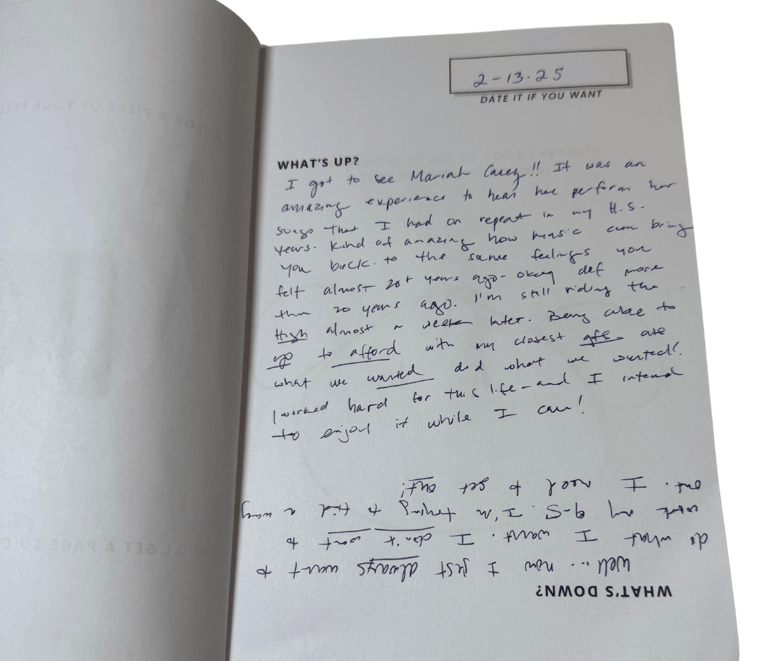 2-13-25
DATE IT IF YOU WANT
WHAT'S UP?
I got to see Mariah Carey!! It was an
amazing experience to hear her perform her
songs that I had on repeat in my H.S.
years. Kind of amazing how music can bring
you back to the same feelings you
felt almost 20+ years ago - okay def more
than 20 years ago. I'm still riding the
High almost a week later. Being able to
go to afford with my closest gfs ate
what we wanted did what we wanted!
I worked hard for this life - and I intend
to enjoy it while I can!
WHAT'S DOWN?
Well... now I just always want to
do what I want. I don't want to
work my 9-5. I'm trying to find a way
out. I need to get out!